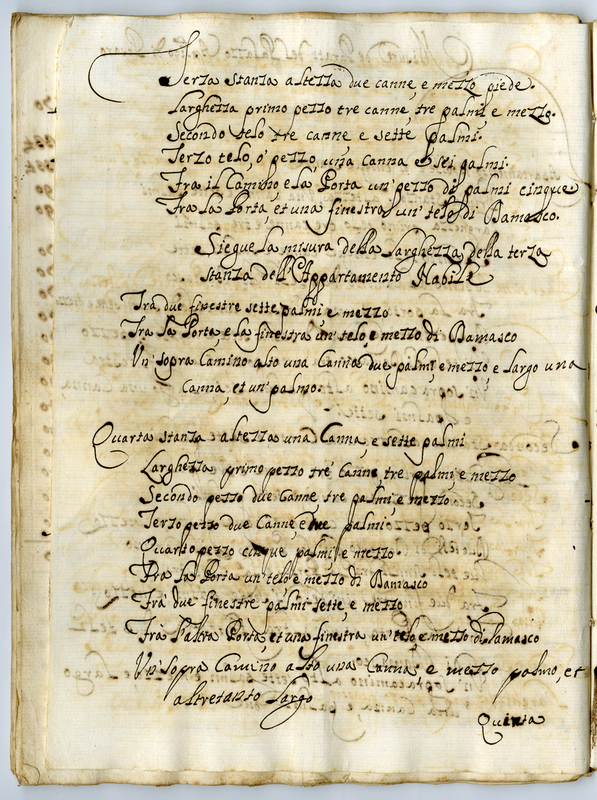 Terza stanza altezza due canne, e mezzo piede.
Larghezza primo pezzo tre canne, tre palmi, e mezzo.
Secondo telo tre canne e sette palmi.
Terzo telo, ò pezzo, una canna e sei palmi.
Fra il Camino, e la Porta un pezzo di palmi cinque
Fra la Porta, et una finestra un telo di Damasco.
Siegue la misura della larghezza della terza
stanza dell'Appartamento Nabile
Trà due finestre sette palmi, e mezzo
Fra la Porta, e la finestra un telo, e mezzo di Damasco
Un sopra Camino alto una Canna due palmi, e mezzo, e largo una
Canna, et un palmo.
Quarta stanza altezza una Canna, e sette palmi
Larghezza primo pezzo trè Canne, tre palmi, e mezzo
Secondo pezzo due Canne tre palmi, e mezzo
Terzo pezzo due Canne, e due palmi
Quarto pezzo cinque palmi, e mezzo.
Fra la Porta un telo e mezzo di Damasco
Trà due finestre palmi sette, e mezzo
Frà l'altra Porta, et una finestra un telo, e mezzo di Damasco
Un sopra Camino alto una Canna, e mezzo palmo, et
altretanto largo
Quinta